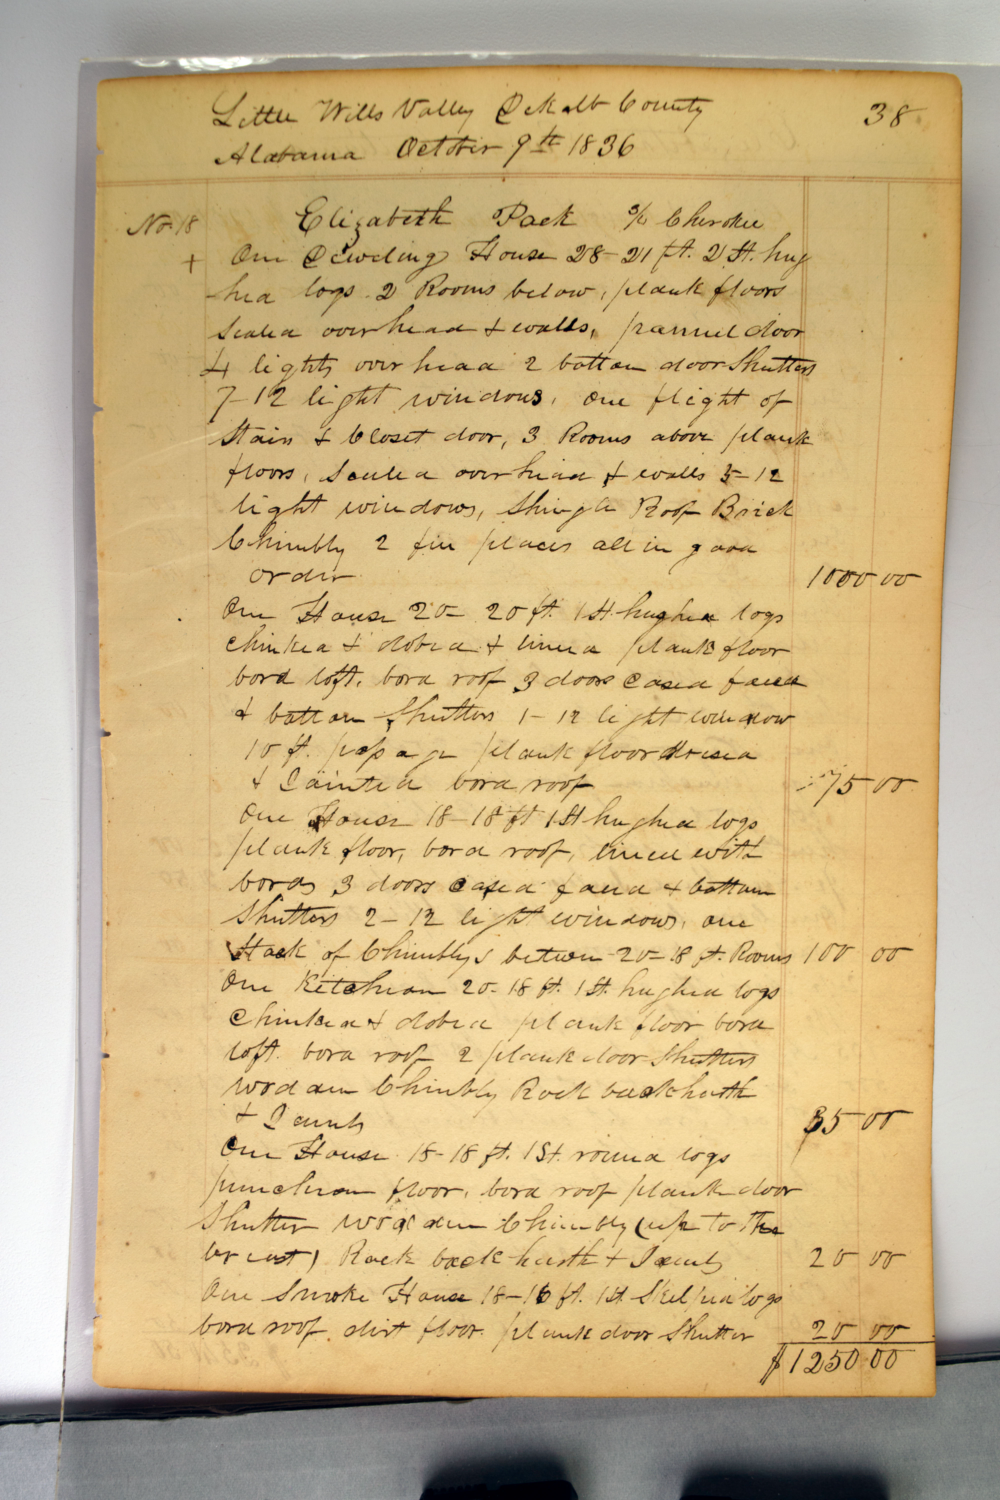 Little Wills Valley DeKalb County 38
Alabama October 9th 1836
No. 18 Elizabeth Pack % Cherokee
+ One Dewling House 28-21 ft. 2 St. hug
hed logs 2 Rooms below, plank floors
Sealed over head & walls, pannel door
4 lights over head 2 battom door Shutters
7-12 light windows, One flight of
Stairs & Closet door, 3 Rooms above plank
floors, Sealed over head & walls 5-12
light windows, Shingle Roof Brick
Chimbly 2 fire places all in good
order 1000 00
One House 20-20 ft. 1 St. hughed logs
chinked & dobed & lined plank floor
bord loft, bord roof 3 doors Cased faced
& battom Shutters 1-12 light window
10 ft. passage plank floor
& Jointed bord roof 75 00
One House 18-18 ft 1 St hughed logs
plank floor, bord roof, lined with
bords 3 doors Cased faced & battom
Shutters 2-12 light windows, one
Stack of Chimblys between 20-18 ft. Rooms 100 00
One Kitchean 20-18 ft. 1 St. hughed logs
Chinked & dobed plank floor bord
loft bord roof 2 plank door Shutters
wodden Chimbly Rock back harth
& Jambs 35 00
One House 18-18 ft. 1 St. round logs
puncheon floor, bord roof plank door
Shutter wodden Chimbly (up to the
breast) Rock back harth & Jambs 20 00
One Smoke House 18-16 ft. 1 St. Skelped logs
bord roof dirt floor plank door Shutter 20 00
$1250 00